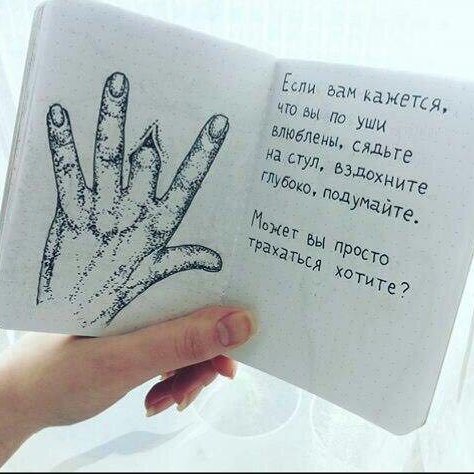 Если вам кажется,
что вы по уши
влюблены, сядьте
на стул, вздохните
глубоко, подумайте.
Может вы просто
трахаться хотите?